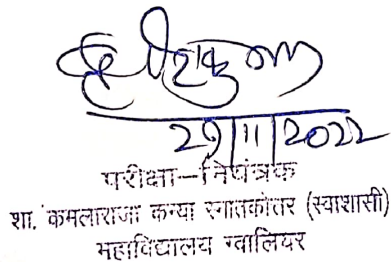 29/11/2022
परीक्षा–नियंत्रक
शा. कमलाराजा कन्या स्नातकोत्तर (स्वाशासी)
महाविद्यालय ग्वालियर